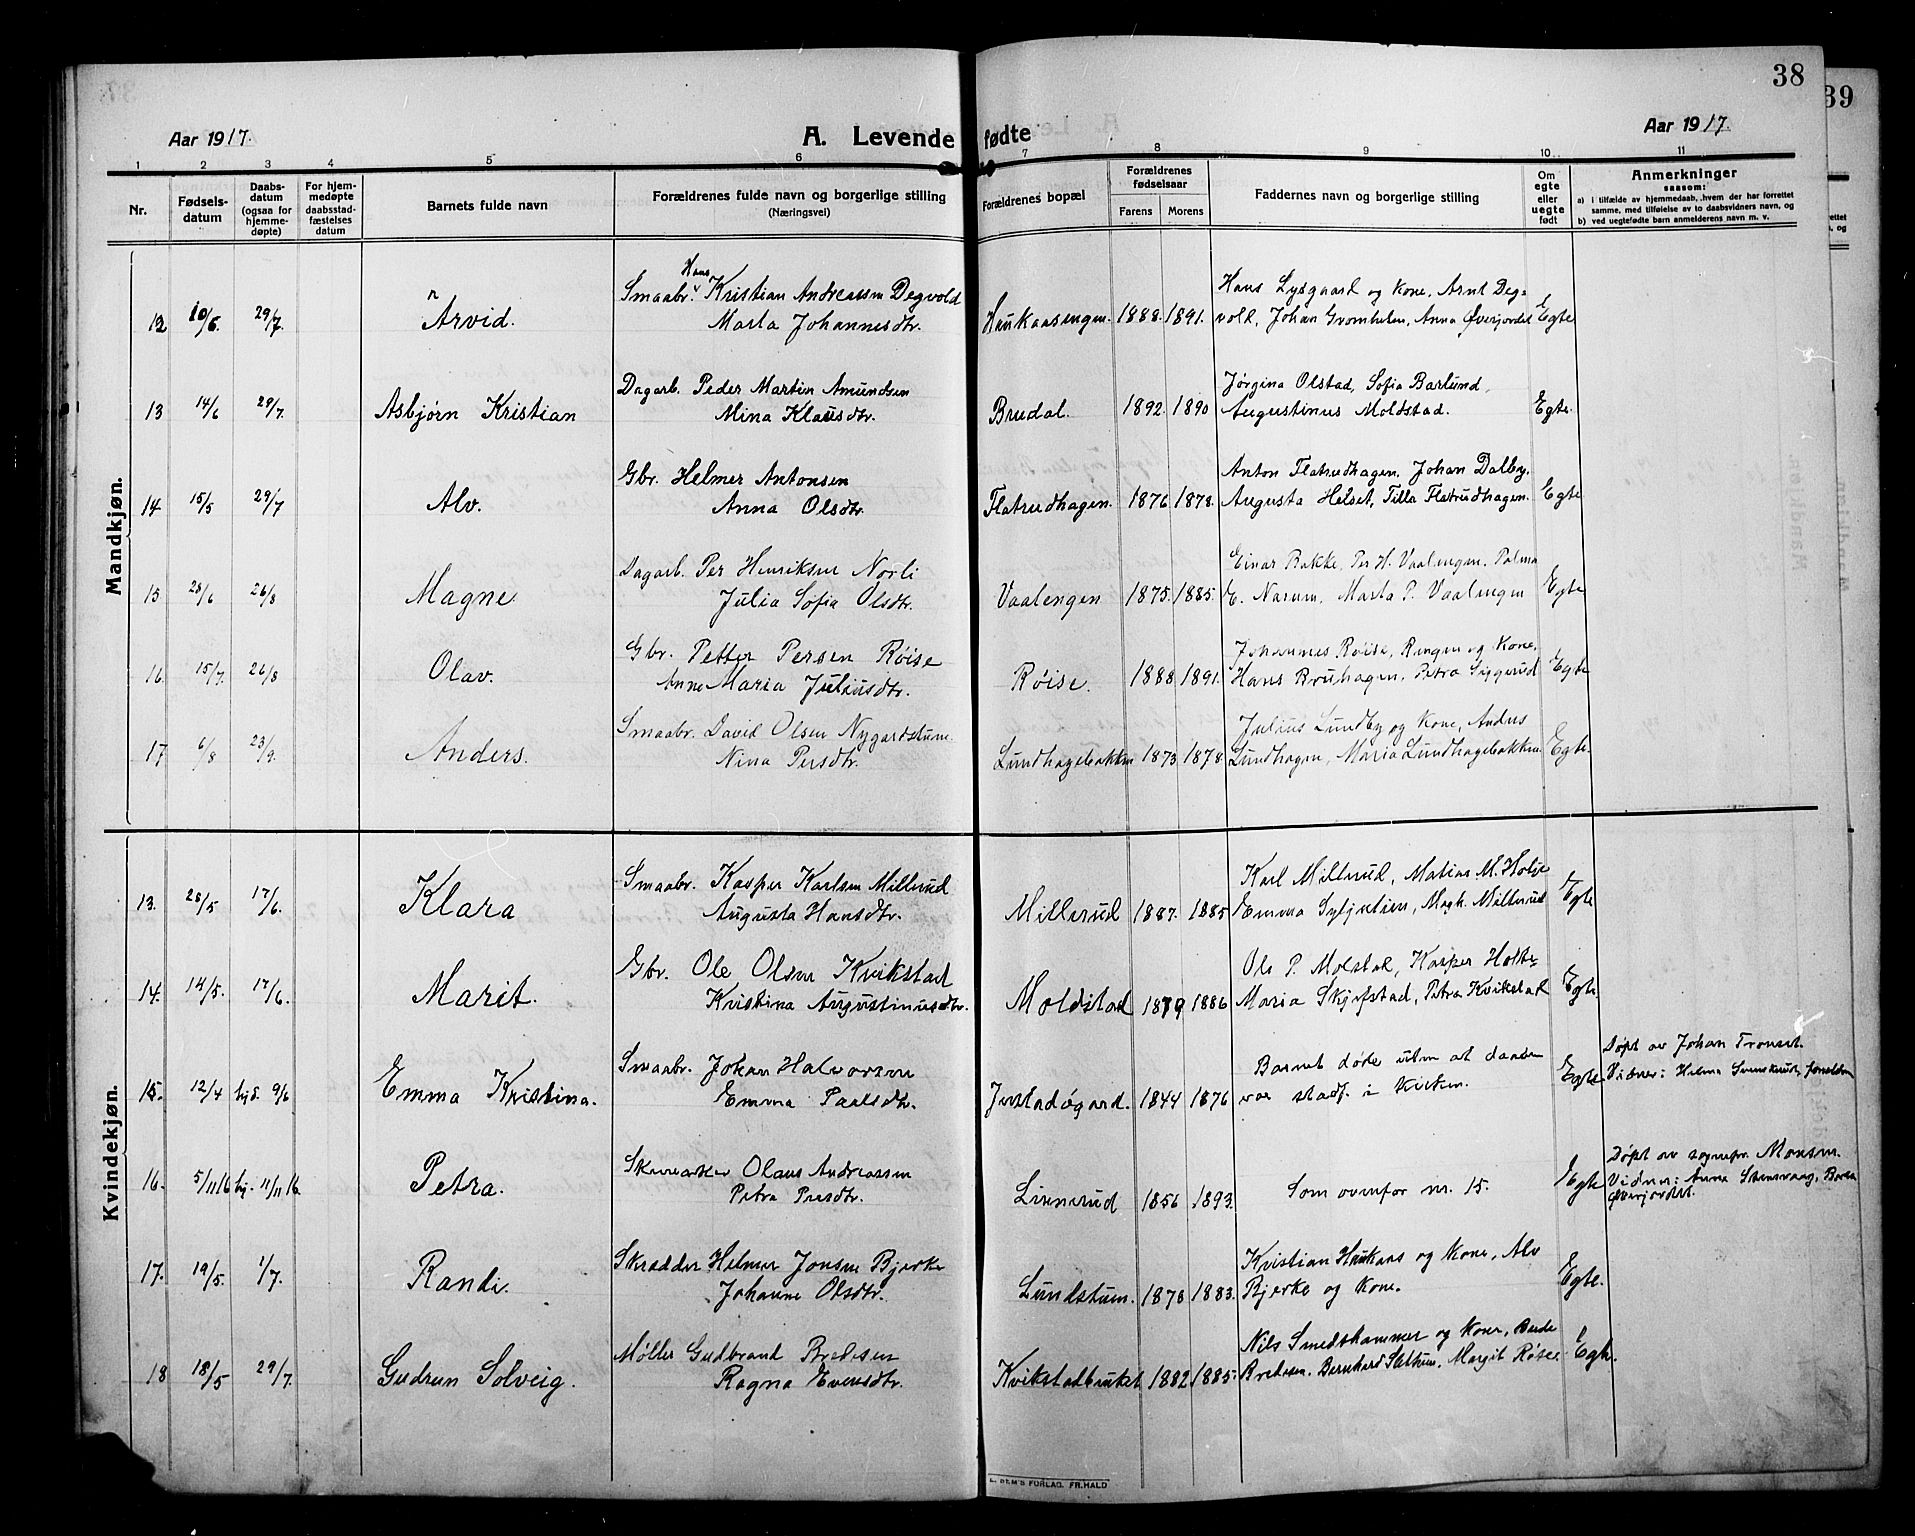 38
39
Aar 1917.
A. Levende fødte
Aar 1917.
1 2 3 4 5 6 7 8 9 10 11
Nr.
Fødsels-datum
Daabs-datum (ogsaa for hjemme-døpte)
For hjem-medøpte daabsstad-fæstelses datum
Barnets fulde navn
Forældrenes fulde navn og borgerlige stilling
(Næringsvei)
Forældrenes bopæl
Forældrenes fødselsaar
Farens Morens
Faddernes navn og borgerlige stilling
Om egte eller uegte født
Anmerkninger
saasom:
a) i tilfælde av hjemmedaab, hvem der har forrettet
samme, med tilføielse av to daabsvidners navn, og
b) ved uegtefødte barn anmelderens navn m. v.
Mandkjøn.
Hans
12 10/6. 29/7. Arvid. Smaabr. Kristian Andreassen Degvold Haukaasengen. 1888. 1891. Hans Lysgaard og kone, Arnt Deg-
Marta Johannesdtr. vold, Johan Gromholm, Anna Øverjordet Egte
13 14/6 29/7. Asbjørn Kristian Dagarb. Peder Martin Amundsen Brudal. 1892. 1890 Jørgina Olstad, Sofia Barlund,
Mina Klausdtr. Augustinus Moldstad. Egte.
14 15/5 29/7 Alv. Gbr. Helmer Antonsen Flatrudhagen. 1876 1878. Anton Flatrudhagen, Johan Dalby,
Anna Olsdtr. Augusta Helset, Tilla Flatrudhagen. Egte
15 28/6 26/8 Magne Dagarb. Per Henriksen Norli Vaalengen 1875. 1885. Einar Bakke, Per H. Vaalengen, Palma
Julia Sofia Olsdtr. E. Narum, Marta P. Vaalengen Egte
16. 15/7. 26/8 Olav. Gbr. Petter Persen Røise Røise. 1888. 1891. Johannes Røise, Ringen og kone,
Anne Maria Juliusdtr. Hans Bruhagen, Petra Syggerud Egte
17 6/8 23/9. Anders. Smaabr. David Olsen Nygardstuen Lundhagebakken 1873 1878. Julius Lundby og kone, Anders
Nina Persdtr. Lundhagen, Maria Lundhagebakken Egte.
Kvindekjøn.
13. 28/5 17/6. Klara Smaabr. Kasper Karlsen Millerud Millerud 1887. 1885 Karl Millerud, Matias M. Holse
Augusta Hansdtr. Emma Syljulien, Magh. Millerud Egte
14. 14/5. 17/6. Marit. Gbr. Ole Olsen Kvikstad Moldstad 1879 1886 Ole P. Molstad, Kasper Holte-
Kristina Augustinusdtr. Maria Skjefstad, Petra Kvikstad Egte.
15. 12/4 hjd. 9/6 Emma Kristina. Smaabr. Johan Halvorsen 1844 1876 Barnet døde uten at daaben
Emma Paalsdtr. var stadf. i kirken. Egte Døpt av Johan Tronset.
Vidner: Helma Svenskerud, forældrene
16. 5/11 16 hj. 11/11 16. Petra. Skomaker Olaus Andreassen Linnerud 1856 1893. Som ovenfor nr. 15. Egte
Petra Persdtr. Døpt av sognepr. Monsen.
Vidner: Anna Stensvaag, Berta
Øverjordet.
17. 19/5. 1/7. Randi. Skrædder Helmer Jonsen Bjerke Lundstuen. 1878 1883. Kristian Haukaas og kone, Alv
Johanne Olsdtr. Bjerke og kone. Egte.
18 18/5 29/7. Gudrun Solveig. Møller Gudbrand Bredesen Kvikstadbruket 1882 1885. Nils Smedshammer og kone, Brede
Ragna Evensdtr. Bredesen, Bernhard Slethum, Margit Røise. Egte.
E. SEM'S FORLAG, FR.HALD